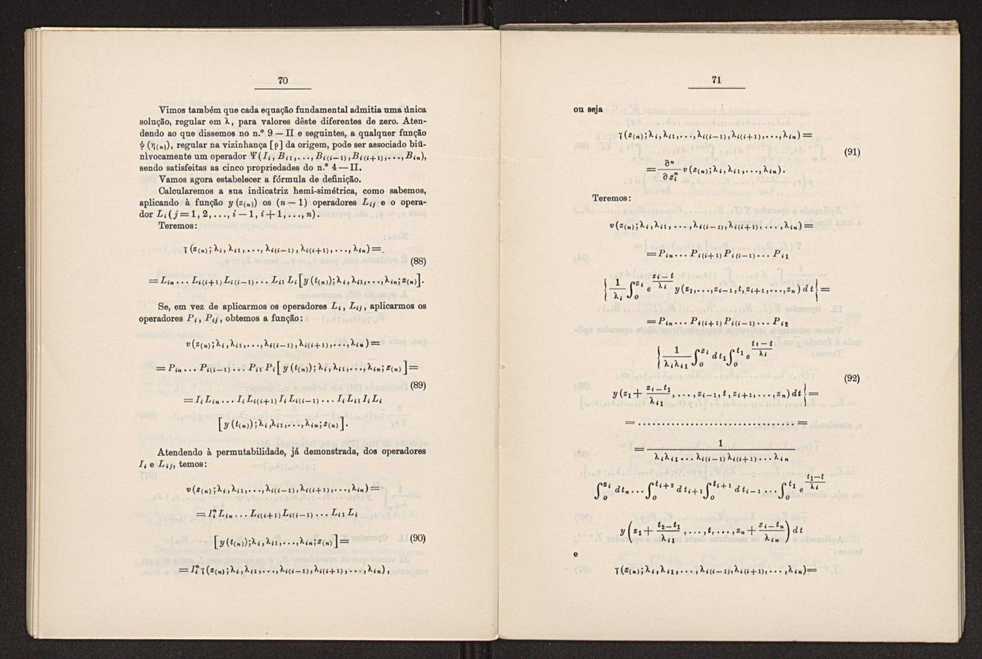 70
Vimos também que cada equação fundamental admitia uma única
solução, regular em λ, para valores dêste diferentes de zero. Aten-
dendo ao que dissemos no n.º 9 — II e seguintes, a qualquer função
ψ(η(n)), regular na vizinhança [ρ] da origem, pode ser associado biü-
nìvocamente um operador Ψ(I_i, B_i1, ..., B_i(i−1), B_i(i+1), ..., B_in),
sendo satisfeitas as cinco propriedades do n.º 4 — II.
Vamos agora estabelecer a fórmula de definição.
Calcularemos a sua indicatriz hemi-simétrica, como sabemos,
aplicando à função y(z(n)) os (n−1) operadores L_ij e o opera-
dor L_i (j=1, 2, ..., i−1, i+1, ..., n).
Teremos:
γ(z(n); λ_i, λ_i1, ..., λ_i(i−1), λ_i(i+1), ..., λ_in) =
(88)
= L_in ... L_i(i+1) L_i(i−1) ... L_i1 L_i [y(t(n)); λ_i, λ_i1, ..., λ_in; z(n)].
Se, em vez de aplicarmos os operadores L_i, L_ij, aplicarmos os
operadores P_i, P_ij, obtemos a função:
v(z(n); λ_i, λ_i1, ..., λ_i(i−1), λ_i(i+1), ..., λ_in) =
= P_in ... P_i(i−1) ... P_i1 P_i [y(t(n)); λ_i, λ_i1, ..., λ_in; z(n)] =
(89)
= I_i L_in ... I_i L_i(i+1) I_i L_i(i−1) ... I_i L_i1 I_i L_i
[y(t(n)); λ_i, λ_i1, ..., λ_in; z(n)].
Atendendo à permutabilidade, já demonstrada, dos operadores
I_i e L_ij, temos:
v(z(n); λ_i, λ_i1, ..., λ_i(i−1), λ_i(i+1), ..., λ_in) =
= I_i^n L_in ... L_i(i+1) L_i(i−1) ... L_i1 L_i
[y(t(n)); λ_i, λ_i1, ..., λ_in; z(n)] = (90)
= I_i^n γ(z(n); λ_i, λ_i1, ..., λ_i(i−1), λ_i(i+1), ..., λ_in),
71
ou seja
γ(z(n); λ_i, λ_i1, ..., λ_i(i−1), λ_i(i+1), ..., λ_in) =
(91)
= ∂^n/∂z_i^n v(z(n); λ_i, λ_i1, ..., λ_in).
Teremos:
v(z(n); λ_i, λ_i1, ..., λ_i(i−1), λ_i(i+1), ..., λ_in) =
= P_in ... P_i(i+1) P_i(i−1) ... P_i1
{1/λ_i ∫_0^{z_i} e^{(z_i−t)/λ_i} y(z_1, ..., z_{i−1}, t, z_{i+1}, ..., z_n) dt} =
= P_in ... P_i(i+1) P_i(i−1) ... P_i2
{1/(λ_i λ_i1) ∫_0^{z_i} dt_1 ∫_0^{t_1} e^{(t_1−t)/λ_i}
(92)
y(z_1 + (z_i−t_1)/λ_i1, ..., z_{i−1}, t, z_{i+1}, ..., z_n) dt} =
= ................................ =
= 1/(λ_i λ_i1 ... λ_i(i−1) λ_i(i+1) ... λ_in)
∫_0^{z_i} dt_n ... ∫_0^{t_{i+2}} dt_{i+1} ∫_0^{t_{i+1}} dt_{i−1} ... ∫_0^{t_1} e^{(t_1−t)/λ_i}
y(z_1 + (t_2−t_1)/λ_i1, ..., t, ..., z_n + (z_i−t_n)/λ_in) dt
e
γ(z(n); λ_i, λ_i1, ..., λ_i(i−1), λ_i(i+1), ..., λ_in) =